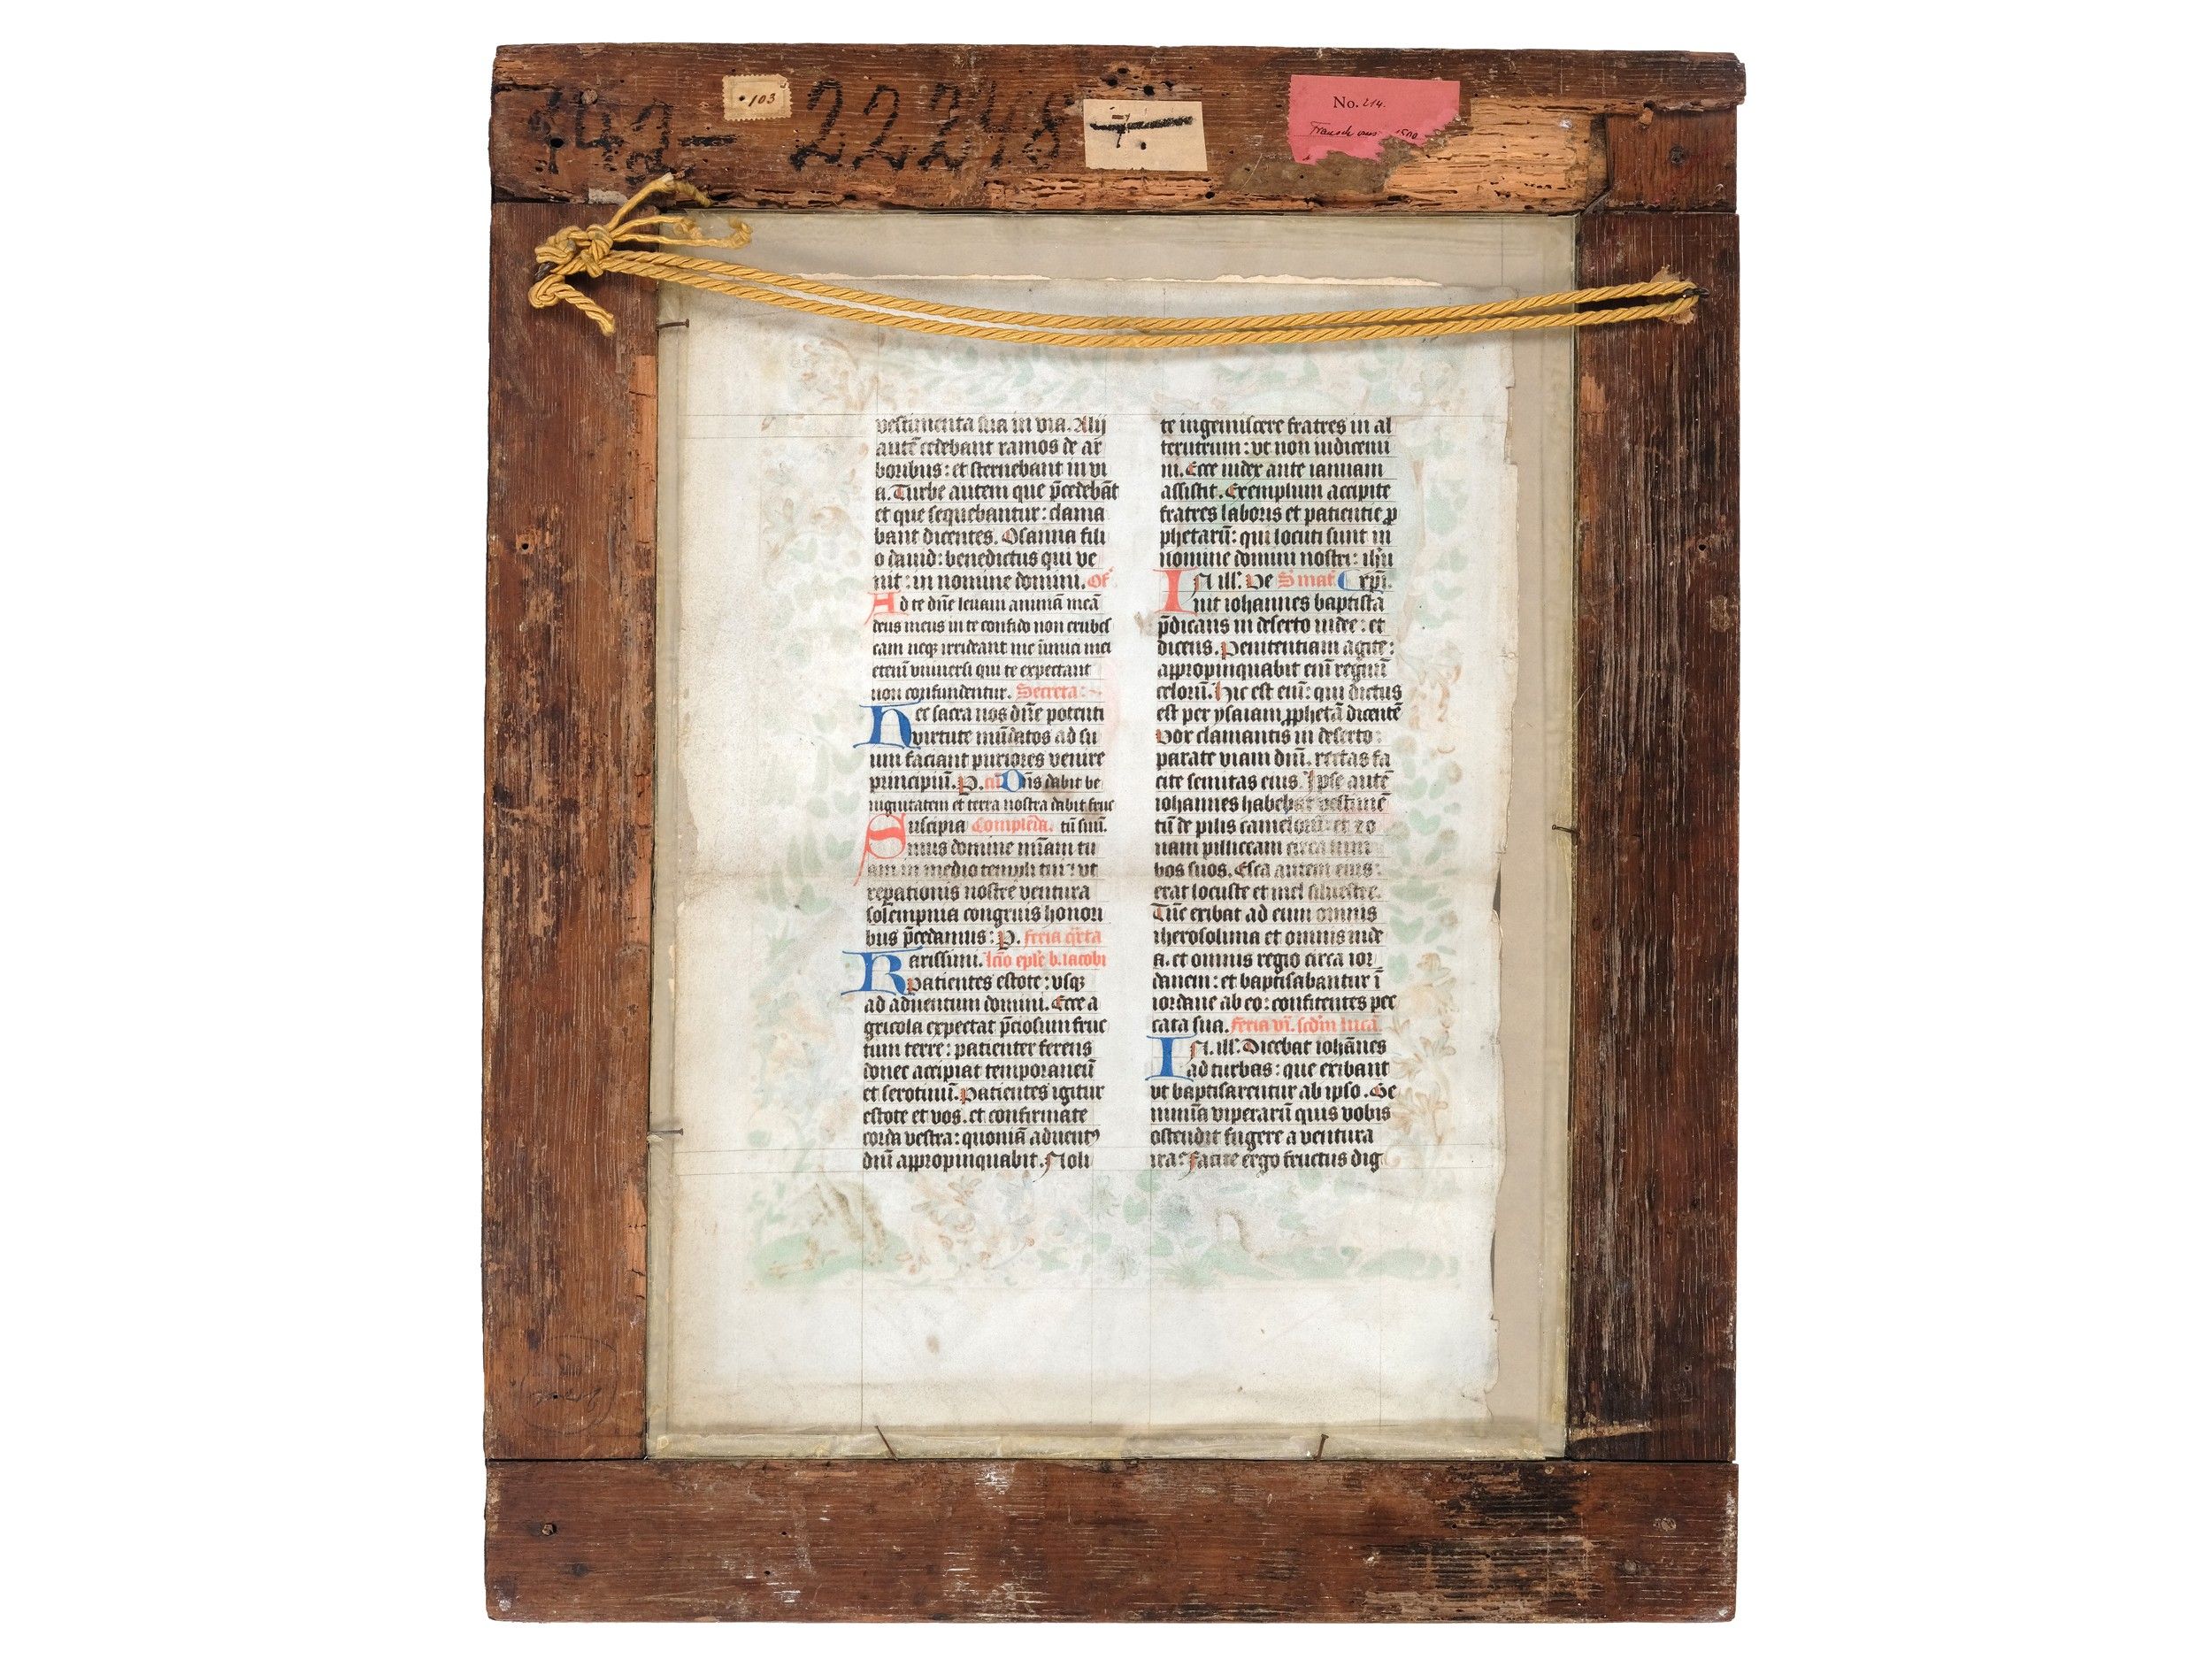 103
22248
No. 214.
vestimenta sua in via. Alij
autē cedebant ramos de ar
boribus: et sternebant in vi
a. Turbe autem que p̄cedebāt
et que sequebantur: clama
bant dicentes. Osanna fili
o dauid: benedictus qui ve
nit: in nomine domini. Of
Ad te dn̄e leuaui animā meā
deus meus in te confido non erubes
cam neqꝫ irrideant me inimici mei
etenī vniuersi qui te expectant
non confundentur. Secreta:
Hec sacra nos dn̄e potenti
virtute mūdatos ad su
um faciant puriores venire
principiū. P. cō Dn̄s dabit be
nignitatem et terra nostra dabit fruc
Suscipia Complēda. tū suū.
mus domine mīam tu
am in medio templi tui: vt
repationis nostre ventura
solempnia congruis honori
bus p̄cedamus: P. feria qr̄ta
Karissimi. lc̄io epl̄e b. iacobi
Patientes estote: vsqꝫ
ad aduentum domini. Ecce a
gricola expectat p̄ciosum fruc
tum terre: patienter ferens
donec accipiat temporaneū
et serotinū. Patientes igitur
estote et vos. et confirmate
corda vestra: quoniā aduentꝰ
dn̄i appropinquabit. Noli
te ingemiscere fratres in al
terutrum: vt non iudicemi
ni. Ecce iudex ante ianuam
assistit. Exemplum accipite
fratres laboris et patientie ꝓ
phetarū: qui locuti sunt in
nomine domini nostri: ih̄u
IN ill'. Ve S mat'. C xp̄i.
nit iohannes baptista
p̄dicans in deserto iudee: et
dicens. Penitentiam agite:
appropinquabit enī regnū
celorū. Hic est enī: qui dictus
est per ysaiam ꝓphetā dicentē
Vox clamantis in deserto:
parate viam dn̄i. rectas fa
cite semitas eius. Ipse autē
iohannes habebat vestimē
tū de pilis camelorū: et zo
nam pilliceam circa lum
bos suos. Esca autem eius:
erat locuste et mel siluestre.
Tūc exibat ad eum omnis
iherosolima et omnis iude
a. et omnis regio circa ior
danem: et baptisabantur ī
iordane ab eo: confitentes pec
cata sua. Feria vi. scdm̄ lucā.
IN. ill'. Dicebat iohānes
ad turbas: que exibant
vt baptisarentur ab ipso. Ge
nimīa viperarū quis vobis
ostendit fugere a ventura
ira: Facite ergo fructus dig